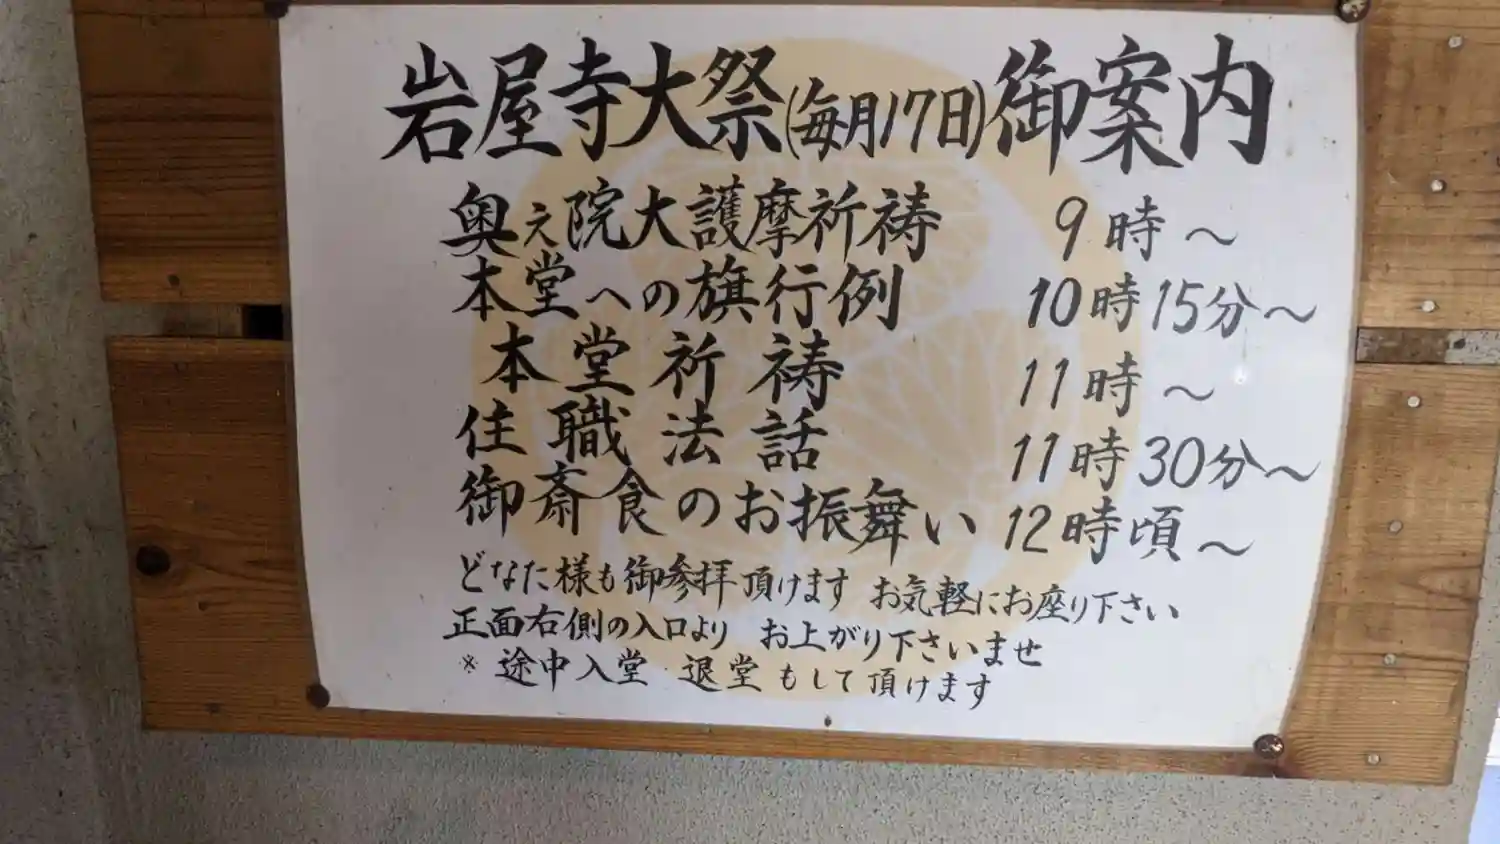 岩屋寺大祭(毎月17日)御案内
奥之院大護摩祈祷 9時~
本堂への旗行例 10時15分~
本堂祈祷 11時~
住職法話 11時30分~
御斎食のお振舞い 12時頃~
どなた様も御参拝頂けます お気軽にお座り下さい
正面右側の入口より お上がり下さいませ
※途中入堂・退堂もして頂けます